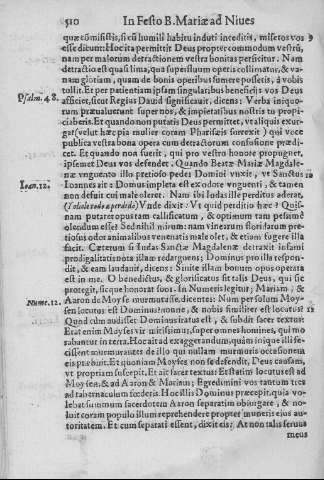 510 In Festo B. Mariæ ad Niues
quæ cõmisistis, si cũ humili habitu induti inceditis, miseros vos 9
esse dicunt: Hoc ita permittit Deus propter commodum vestrũ,
nam per malorum detractionem vestra bonitas persicitur. Nam
detractio est quasi lima, qua superfluum operis collimatur, & va-
nam gloriam, quam de bonis operibus sumere possetis, à vobis
tollit. Et per patientiam ipsam singularibus beneficijs vos Deus
Psalm. 48. afficiet, sicut Regius Dauid significauit, dicens; Verba iniquo-
rum præualuerunt super nos, & impietatibus nostris tu propi-
ciaberis. Et quando non putatis Deus permittet, vt aliquis exur-
gat (velut hæc pia mulier coram Pharisæis surrexit) qui voce
publica vestra bona opera cum detractorum confusione prædi-
cet. Et quando non fuerit, qui pro vestro honore propugnet,
ipsemet Deus vos defendet; Quando Beatæ Mariæ Magdale-
næ vnguento illo pretioso pedes Domini vnxit, vt Sanctus 10
Ioan. 12. Ioannes ait: Domus impleta est ex odore vnguenti, & tamen
non defuit cui male oleret. Nam sibi Iudas ille perditus aderat,
Vnde dixit: Vt quid perditio hæc? Quis-
nam putaret opus tam callificatum, & optimum tam pessimè
olendum esse? Sed nihil mirum: nam vinearum flori larum pre-
tiosus odor animalibus venenatis male olet, & etiam fugere illa
facit. Cæterum si Iudas Sanctæ Magdalenæ detraxit infami
prodigalitatis nota illam redarguens; Dominus pro illa respon-
dit, & eam laudauit, dicens; Sinite illam bonum opus operata
est in me. O benedictus, & glorificatus sit talis Deus, qui sic
protegit, sicque honorat suos. In Numeris legitur; Mariam, & 11
Numer. 12. Aaron de Moyse murmurasse, dicentes: Num per solum Moy-
sen locutus est Dominus? nonne, & nobis similiter est locutus? 12
Quod cum audisset Dominus iratus est, & subdit sacer textus:
Erat enim Moyses vir mitissimus, super omnes homines, qui mo
rabantur in terra. Hoc ait ad exaggerandum, quàm iniquè illi fe-
cissent murmurantes de illo qui nullam murmuris occasionem
eis præbuit. Et quoniam Moyses non se defendit, Deus causam,
vt propriam suscepit. Et ait sacer textus: Et statim locutus est ad
Moysen, & ad Aaron & Mariam; Egredimini vos tantum tres
ad tabernaculum fœderis. Hoc illis Dominus præcepit, quia vo-
lebat summum sacerdotem Aaron separatim obiurgare, & no-
luit coram populo illum reprehendere propter muneris eius au-
toritatem. Et cum separati essent, dixit eis: At non talis seruus
meus